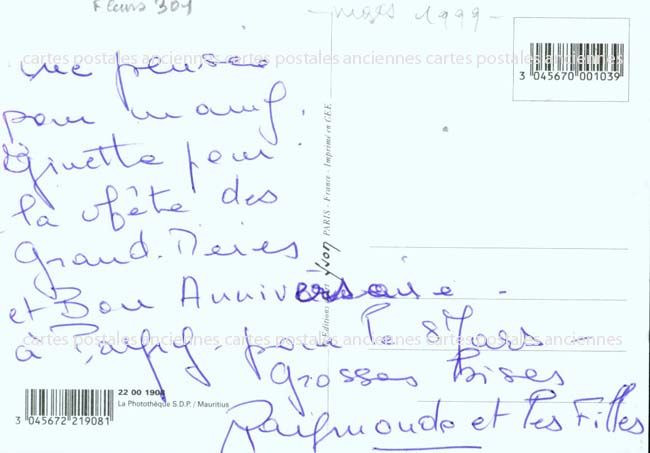 Fleurs 301
- mars 1999 -
cartes postales anciennes cartes postales anciennes cartes postales anciennes
une pensée
pour mamy
Ginette pour
la fête des
Grand-Mères
et Bon Anniversaire -
à Papy - pour le 8 Mars
Grosses Bises
Raymonde et les Filles
cartes postales anciennes cartes postales anciennes cartes postales anciennes
3 045670 001039
Editions d'art yvon PARIS - France - Imprimé en CEE
22 00 1908
La Photothèque S.D.P. / Mauritius
3 045672 219081